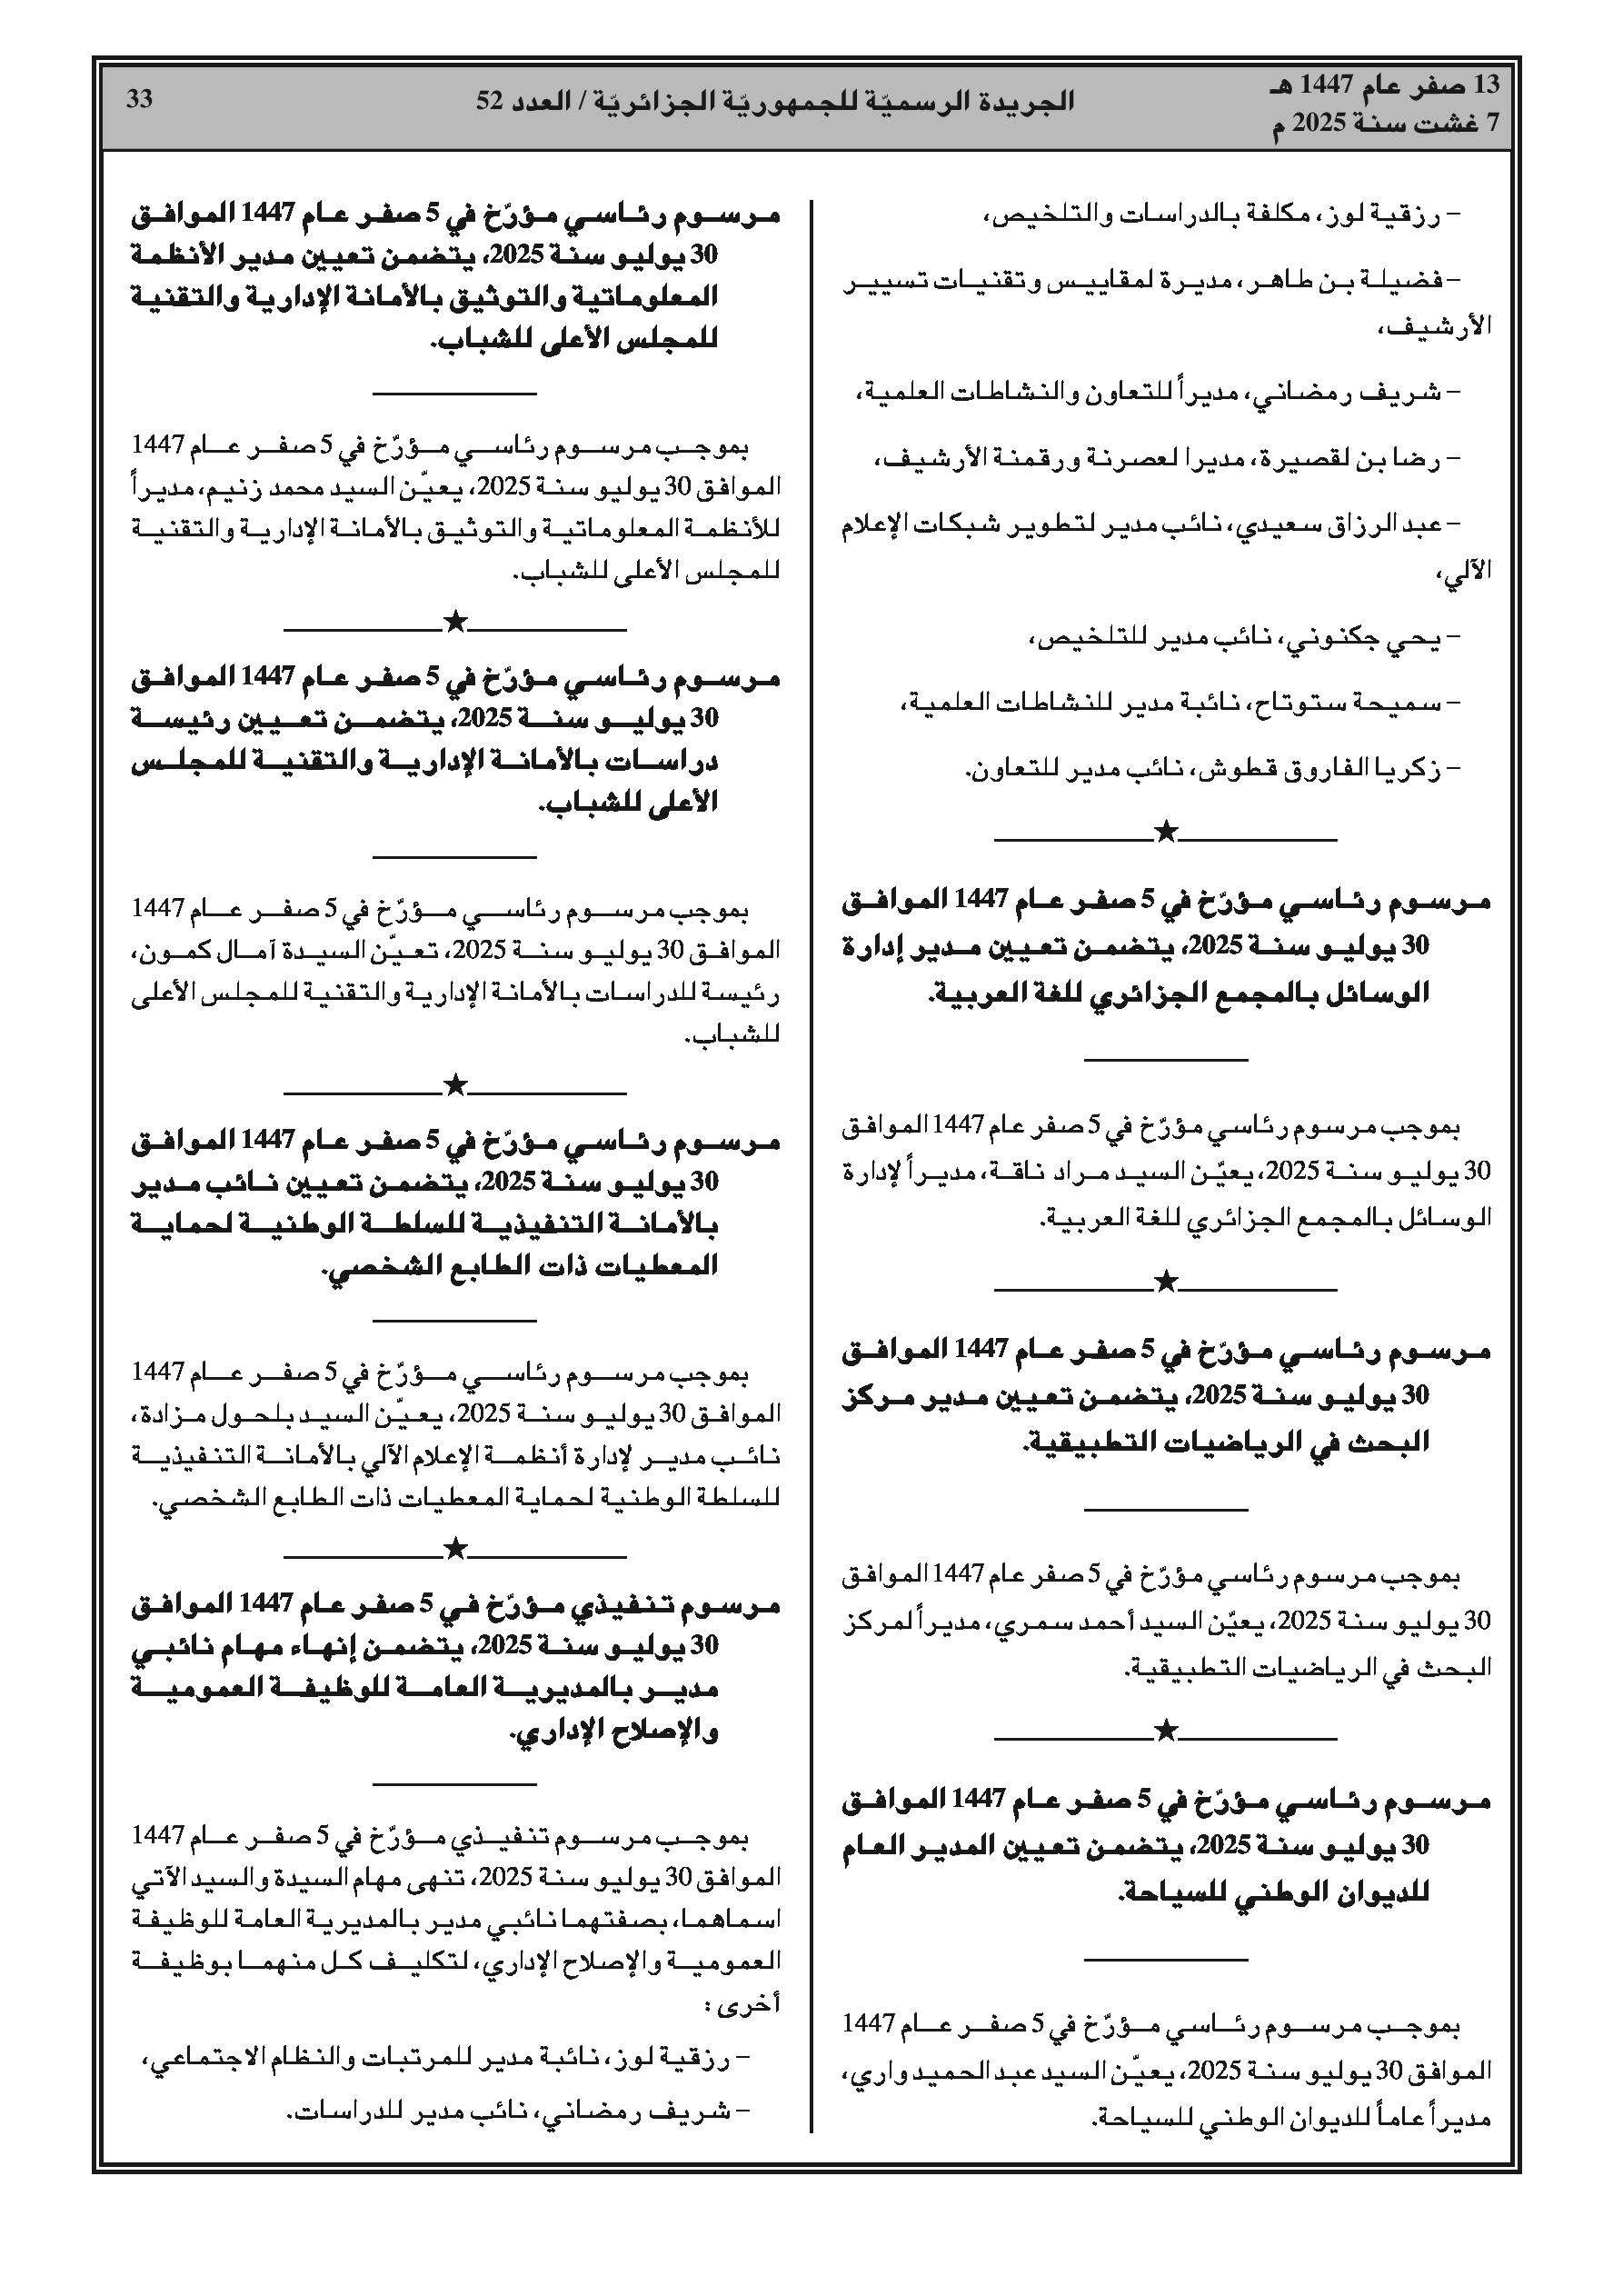 13 صفر عام 1447 هـ
7 غشت سنة 2025 م
الجريدة الرسميّة للجمهوريّة الجزائريّة / العدد 52
33
– رزقية لوز، مكلفة بالدراسات والتلخيص،
– فضيلة بن طاهر، مديرة لمقاييس وتقنيات تسيير
الأرشيف،
– شريف رمضاني، مديراً للتعاون والنشاطات العلمية،
– رضا بن لقصيرة، مديرا لعصرنة ورقمنة الأرشيف،
– عبد الرزاق سعيدي، نائب مدير لتطوير شبكات الإعلام
الآلي،
– يحي جكنوني، نائب مدير للتلخيص،
– سميحة ستوتاح، نائبة مدير للنشاطات العلمية،
– زكريا الفاروق قطوش، نائب مدير للتعاون.
مرسوم رئاسي مؤرّخ في 5 صفر عام 1447 الموافق
30 يوليو سنة 2025، يتضمن تعيين مدير إدارة
الوسائل بالمجمع الجزائري للغة العربية.
بموجب مرسوم رئاسي مؤرّخ في 5 صفر عام 1447 الموافق
30 يوليو سنة 2025، يعيّن السيد مراد ناقة، مديراً لإدارة
الوسائل بالمجمع الجزائري للغة العربية.
مرسوم رئاسي مؤرّخ في 5 صفر عام 1447 الموافق
30 يوليو سنة 2025، يتضمن تعيين مدير مركز
البحث في الرياضيات التطبيقية.
بموجب مرسوم رئاسي مؤرّخ في 5 صفر عام 1447 الموافق
30 يوليو سنة 2025، يعيّن السيد أحمد سمري، مديراً لمركز
البحث في الرياضيات التطبيقية.
مرسوم رئاسي مؤرّخ في 5 صفر عام 1447 الموافق
30 يوليو سنة 2025، يتضمن تعيين المدير العام
للديوان الوطني للسياحة.
بموجب مرسوم رئاسي مؤرّخ في 5 صفر عام 1447
الموافق 30 يوليو سنة 2025، يعيّن السيد عبد الحميد واري،
مديراً عاماً للديوان الوطني للسياحة.
مرسوم رئاسي مؤرّخ في 5 صفر عام 1447 الموافق
30 يوليو سنة 2025، يتضمن تعيين مدير الأنظمة
المعلوماتية والتوثيق بالأمانة الإدارية والتقنية
للمجلس الأعلى للشباب.
بموجب مرسوم رئاسي مؤرّخ في 5 صفر عام 1447
الموافق 30 يوليو سنة 2025، يعيّن السيد محمد زنيم، مديراً
للأنظمة المعلوماتية والتوثيق بالأمانة الإدارية والتقنية
للمجلس الأعلى للشباب.
مرسوم رئاسي مؤرّخ في 5 صفر عام 1447 الموافق
30 يوليو سنة 2025، يتضمن تعيين رئيسة
دراسات بالأمانة الإدارية والتقنية للمجلس
الأعلى للشباب.
بموجب مرسوم رئاسي مؤرّخ في 5 صفر عام 1447
الموافق 30 يوليو سنة 2025، تعيّن السيدة آمال كمون،
رئيسة للدراسات بالأمانة الإدارية والتقنية للمجلس الأعلى
للشباب.
مرسوم رئاسي مؤرّخ في 5 صفر عام 1447 الموافق
30 يوليو سنة 2025، يتضمن تعيين نائب مدير
بالأمانة التنفيذية للسلطة الوطنية لحماية
المعطيات ذات الطابع الشخصي.
بموجب مرسوم رئاسي مؤرّخ في 5 صفر عام 1447
الموافق 30 يوليو سنة 2025، يعيّن السيد بلحول مزادة،
نائب مدير لإدارة أنظمة الإعلام الآلي بالأمانة التنفيذية
للسلطة الوطنية لحماية المعطيات ذات الطابع الشخصي.
مرسوم تنفيذي مؤرّخ في 5 صفر عام 1447 الموافق
30 يوليو سنة 2025، يتضمن إنهاء مهام نائبي
مدير بالمديرية العامة للوظيفة العمومية
والإصلاح الإداري.
بموجب مرسوم تنفيذي مؤرّخ في 5 صفر عام 1447
الموافق 30 يوليو سنة 2025، تنهى مهام السيدة والسيد الآتي
اسماهما، بصفتهما نائبي مدير بالمديرية العامة للوظيفة
العمومية والإصلاح الإداري، لتكليف كل منهما بوظيفة
أخرى :
– رزقية لوز، نائبة مدير للمرتبات والنظام الاجتماعي،
– شريف رمضاني، نائب مدير للدراسات.